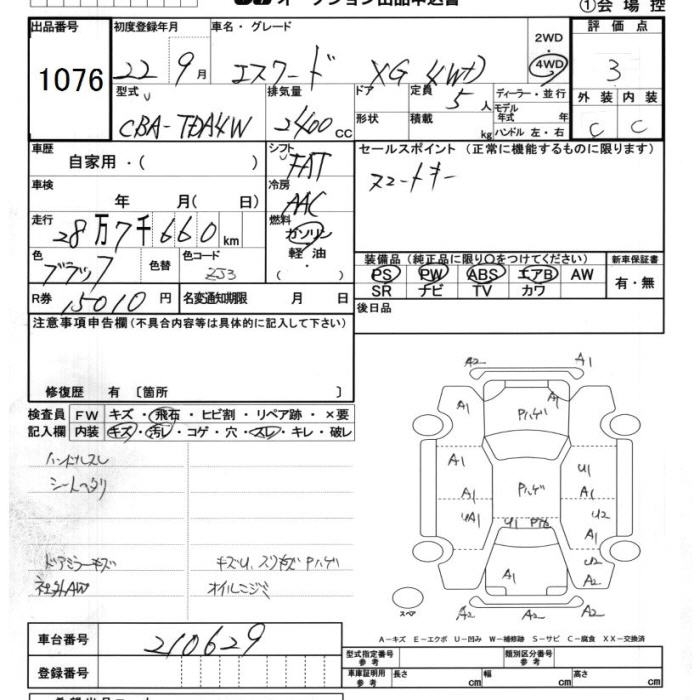 オークション出品申込書
①会場控
出品番号 1076
初度登録年月 22 9月
車名・グレード エスクード XG 4WD
2WD 4WD
評価点 3
外装 内装
C C
型式 CBA-TDA4W
排気量 2400 CC
ドア 形状
定員 5人
積載 kg
ディーラー・並行
モデル年式 年
ハンドル 左・右
車歴 自家用・( )
シフト FAT
セールスポイント(正常に機能するものに限ります)
スマートキー
車検 年 月( 日)
冷房 AAC
走行 28万7千660km
燃料 ガソリン 軽油 ( )
色 ブラック 色替
色コード ZJ3
装備品(純正品に限り○をつけてください)
PS PW ABS エアB AW
SR ナビ TV カワ
新車保証書 有・無
R券 15010円
名変通知期限 月 日
後日品
注意事項申告欄(不具合内容等は具体的に記入して下さい)
修復歴 有〔箇所 〕
検査員 FW キズ・飛石・ヒビ割・リペア跡・×要
記入欄 内装 キズ・汚レ・コゲ・穴・スレ・キレ・破レ
ハンドルスレ
シートヘタリ
ドアミラーキズ
キズU、スリキズ Pハゲ
社外AW
オイルニジミ
A2 A1
A1 A1
Pハゲ
A1 U1
A1 Pハゲ A1
UA1 U2
U1 A1
U2
A1 A2
A2 A2 A2
スペア
A-キズ E-エクボ U-凹み W-補修跡 S-サビ C-腐食 XX-交換済
車台番号 210629
登録番号
型式指定番号 参考
類別区分番号 参考
車庫証明用 参考 長さ cm 幅 cm 高さ cm